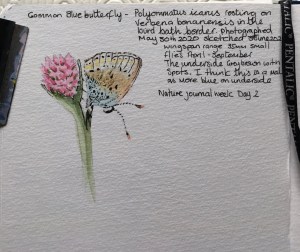 Common Blue butterfly - Polyommatus icarus resting on
Verbena bonariensis in the
bird bath border. photographed
May 30th 2020 sketched
wingspan range 35mm small
flies April - September
The underside Grey brown with
Spots. I think this is a male
as more blue on underside
Nature journal week Day 2
PENTALIC